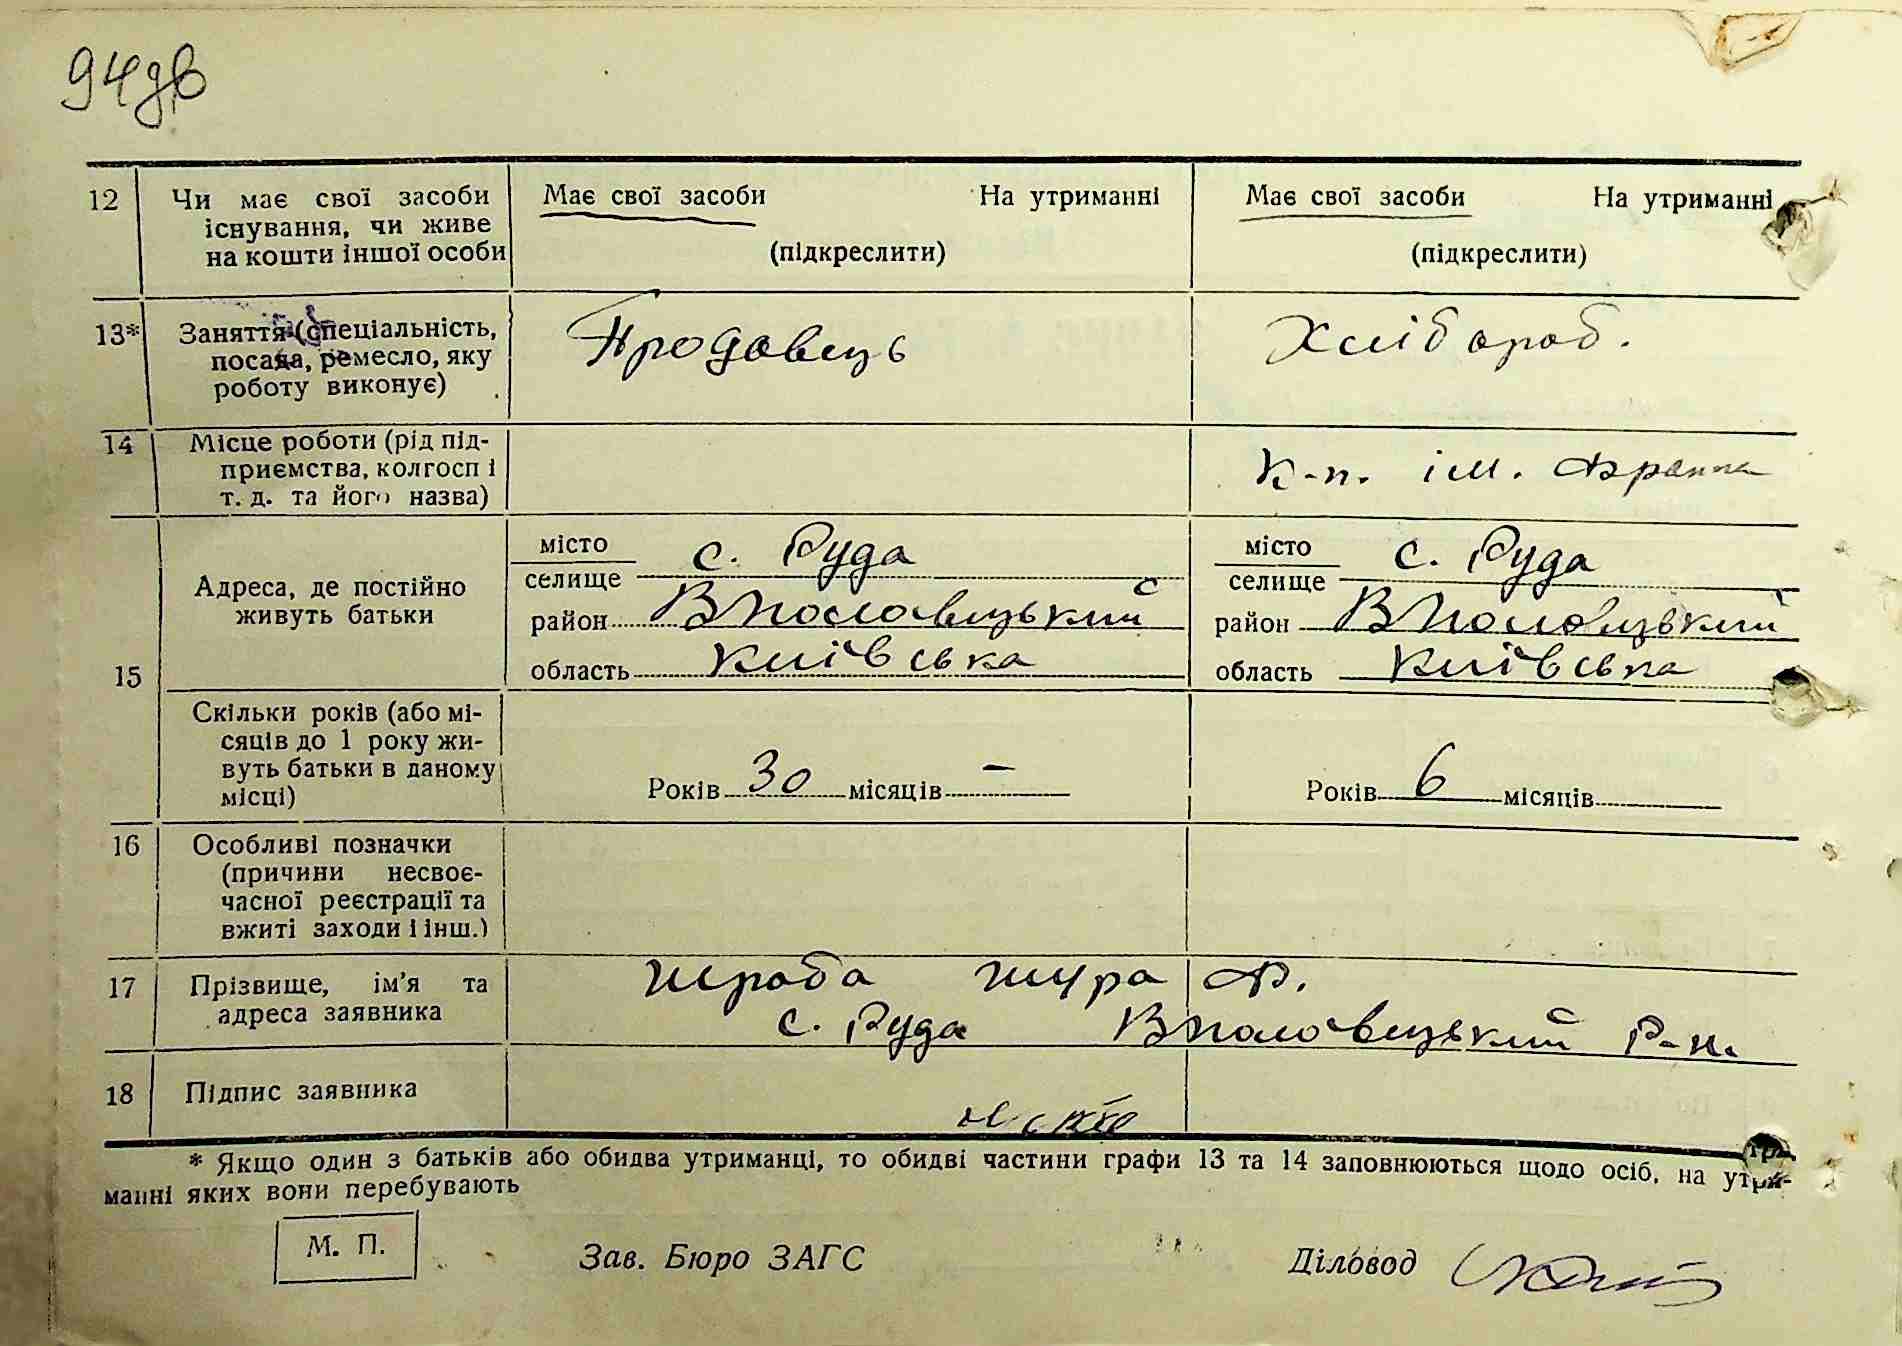 94зв
12 Чи має свої засоби існування, чи живе на кошти іншої особи
Має свої засоби На утриманні
(підкреслити)
Має свої засоби На утриманні
(підкреслити)
13* Заняття (спеціальність, посада, ремесло, яку роботу виконує)
Продавець
Хлібороб.
14 Місце роботи (рід підприємства, колгосп і т. д. та його назва)
К-п. ім.
15 Адреса, де постійно живуть батьки
місто
селище с. Руда
район ВПоловецький
область Київська
місто
селище с. Руда
район ВПоловецький
область Київська
Скільки років (або місяців до 1 року живуть батьки в даному місці)
Років 30 місяців —
Років 6 місяців
16 Особливі позначки (причини несвоєчасної реєстрації та вжиті заходи і інш.)
17 Прізвище, ім'я та адреса заявника
с. Руда ВПоловецький Р-н.
18 Підпис заявника
* Якщо один з батьків або обидва утриманці, то обидві частини графи 13 та 14 заповнюються щодо осіб, на утри-
манні яких вони перебувають
М. П.
Зав. Бюро ЗАГС
Діловод